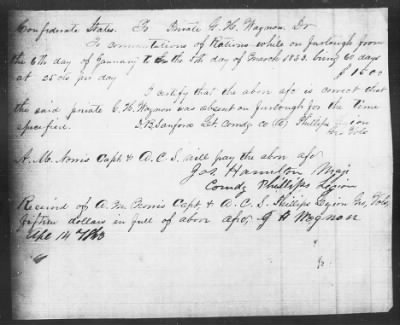 Confederate States. To Private G. H. Wagnon Dr
To commutations of Rations while on furlough from
the 6th day of January to the 5th day of March 1863. being 60 days
at 25 cts per day $15.00
I certify that the abov a/c is correct that
the said private G. H. Wagnon was absent on furlough for the time
specified. Lt. Comdg co Phillips Legion
Geo Vols
A. M. Norris Capt & A. C. S. will pay the abov a/c
Jos Hamilton Maj
Comdg Phillips Legion
Received of A. M. Norris Capt & A. C. S. Phillips Legion Geo, Vols,
fifteen dollars in full of abov a/c, G H Wagnon
Apl 14 1863